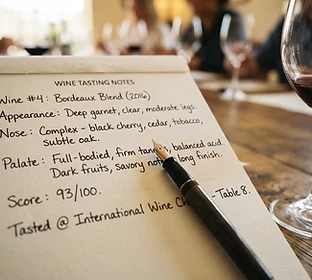 WINE TASTING NOTES
Wine #4: Bordeaux Blend (2016)
Appearance: Deep garnet, clear, moderate legs.
Nose: Complex - black cherry, cedar, tobacco,
subtle oak.
Palate: Full-bodied, firm balanced acid.
Dark fruits, savory long finish.
Score: 93/100.
Tasted @ International Wine - Table 8.